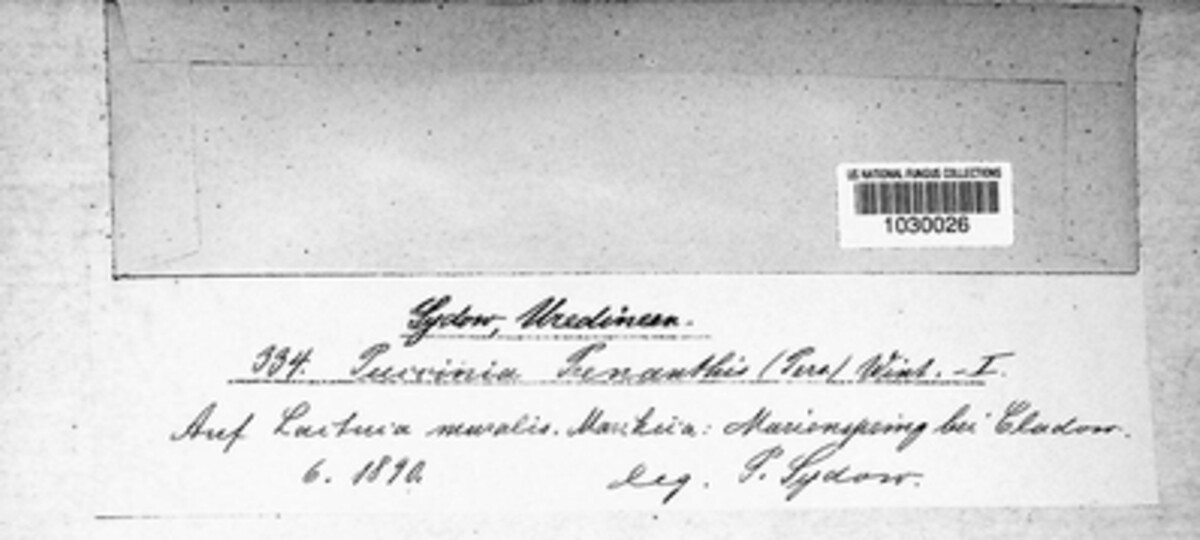 US NATIONAL FUNGUS COLLECTIONS
1030026
Sydow, Uredineen.
334. Puccinia Prenanthis (Pers) Wint. - I.
Auf Lactuca muralis. Marchia: Marienspring bei Cladow.
6. 1890. leg. P. Sydow.